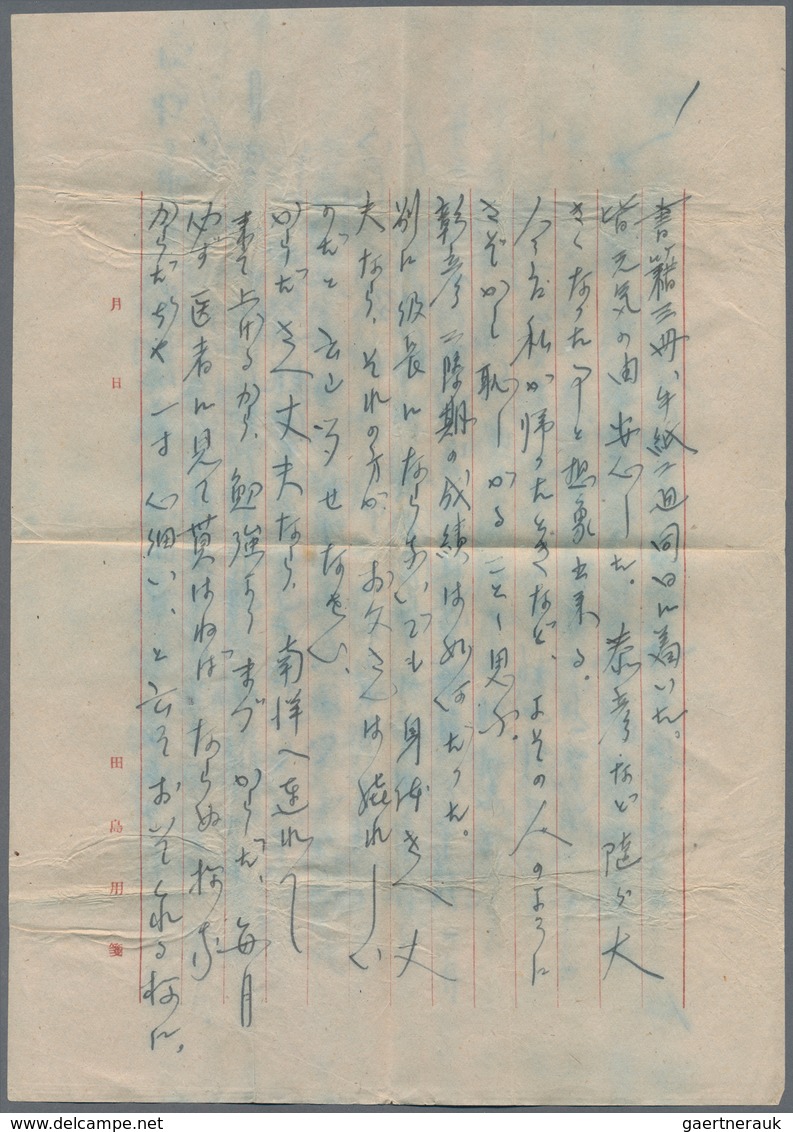 1
書籍三冊、手紙二通同日に着いた。
皆元気の由安心した。泰彦など随分大
きくなった事と想象出来る。
今度私が帰ったときなど、よその人のように
さぞかし恥しがること丶思ふ。
彰彦二学期の成績は如何だった。
別に級長にならないでも身体さへ丈
夫なら、それの方が、お父さんは嬉れしい
のだと云ひ聞せなさい、
からださへ丈夫なら、南洋へ連れて
来て上げるから、勉強よりまづからだ、毎月
必ず医者に見て貰はねばならぬ様な
からだぢや一寸心細い、と云っておいてくれる様に、
月 日
田島用箋
delcampe.net
gaertnerauk